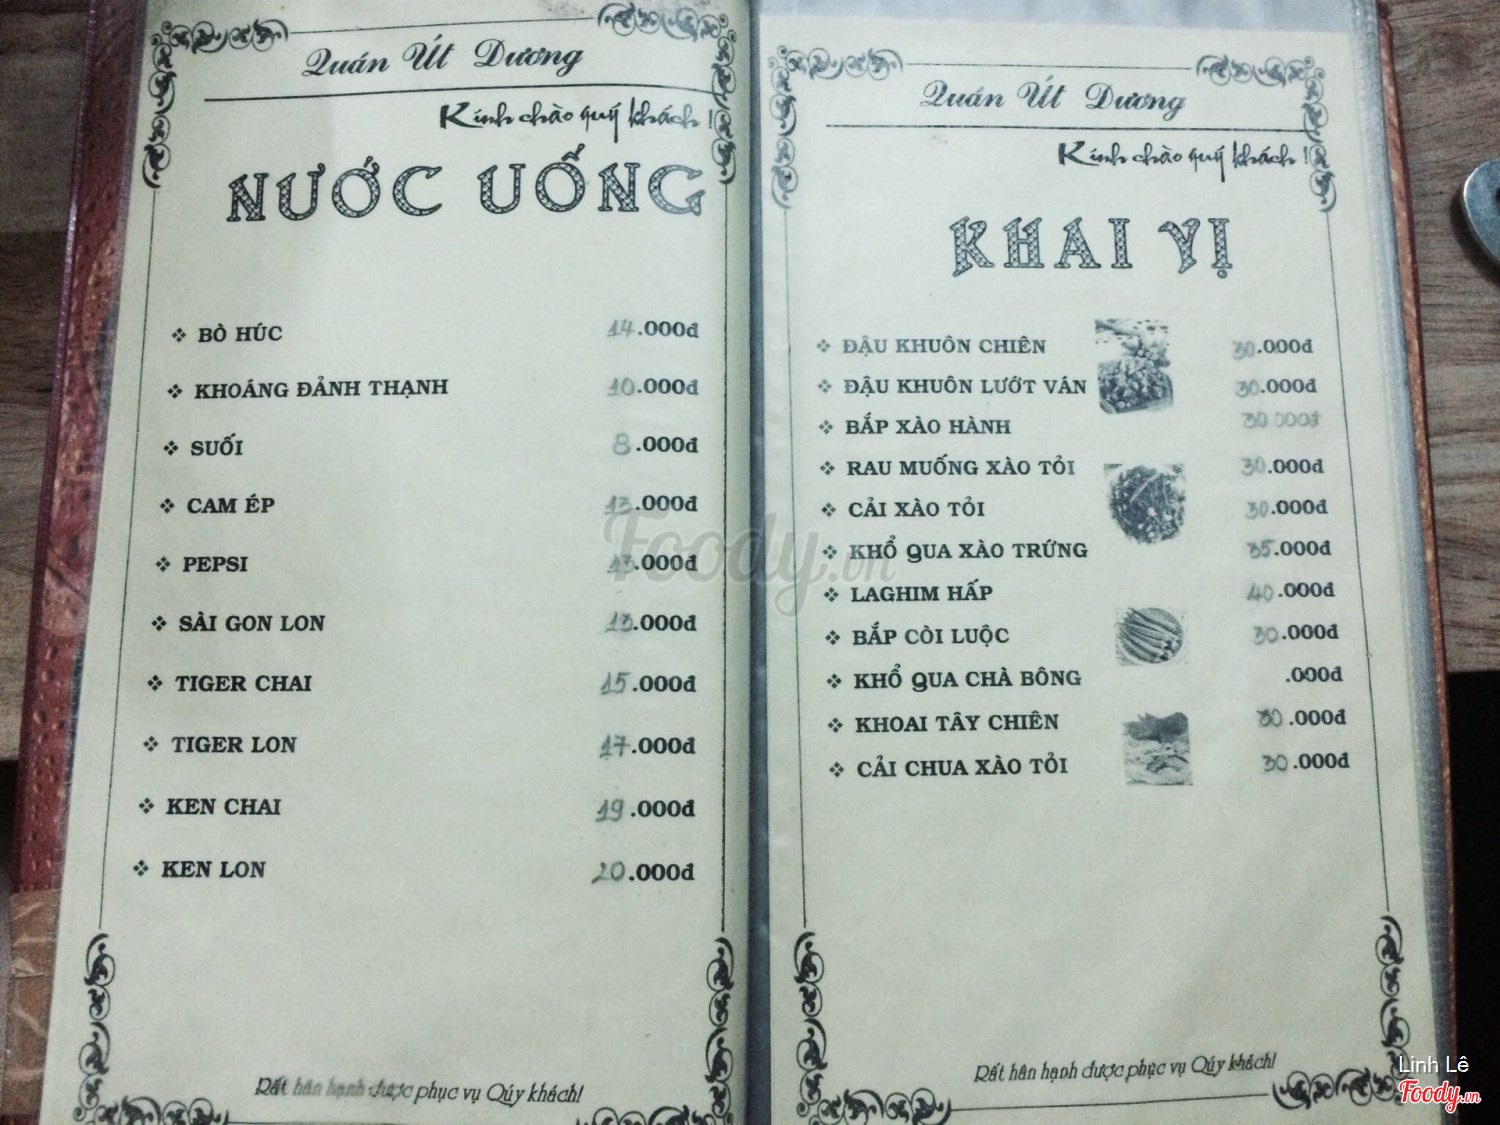 Quán Út Dương
Kính chào quý khách !
NƯỚC UỐNG
❖ BÒ HÚC 14.000đ
❖ KHOÁNG ĐẢNH THẠNH 10.000đ
❖ SUỐI 8.000đ
❖ CAM ÉP 13.000đ
❖ PEPSI 13.000đ
❖ SÀI GON LON 13.000đ
❖ TIGER CHAI 15.000đ
❖ TIGER LON 17.000đ
❖ KEN CHAI 19.000đ
❖ KEN LON 20.000đ
Rất hân hạnh được phục vụ Qúy khách!
Quán Út Dương
Kính chào quý khách !
KHAI VỊ
❖ ĐẬU KHUÔN CHIÊN 30.000đ
❖ ĐẬU KHUÔN LƯỚT VÁN 30.000đ
❖ BẮP XÀO HÀNH 30.000đ
❖ RAU MUỐNG XÀO TỎI 30.000đ
❖ CẢI XÀO TỎI 30.000đ
❖ KHỔ QUA XÀO TRỨNG 35.000đ
❖ LAGHIM HẤP 40.000đ
❖ BẮP CÒI LUỘC 30.000đ
❖ KHỔ QUA CHÀ BÔNG .000đ
❖ KHOAI TÂY CHIÊN 30.000đ
❖ CẢI CHUA XÀO TỎI 30.000đ
Rất hân hạnh được phục vụ Qúy khách!
Foody.vn
Linh Lê
Foody.vn